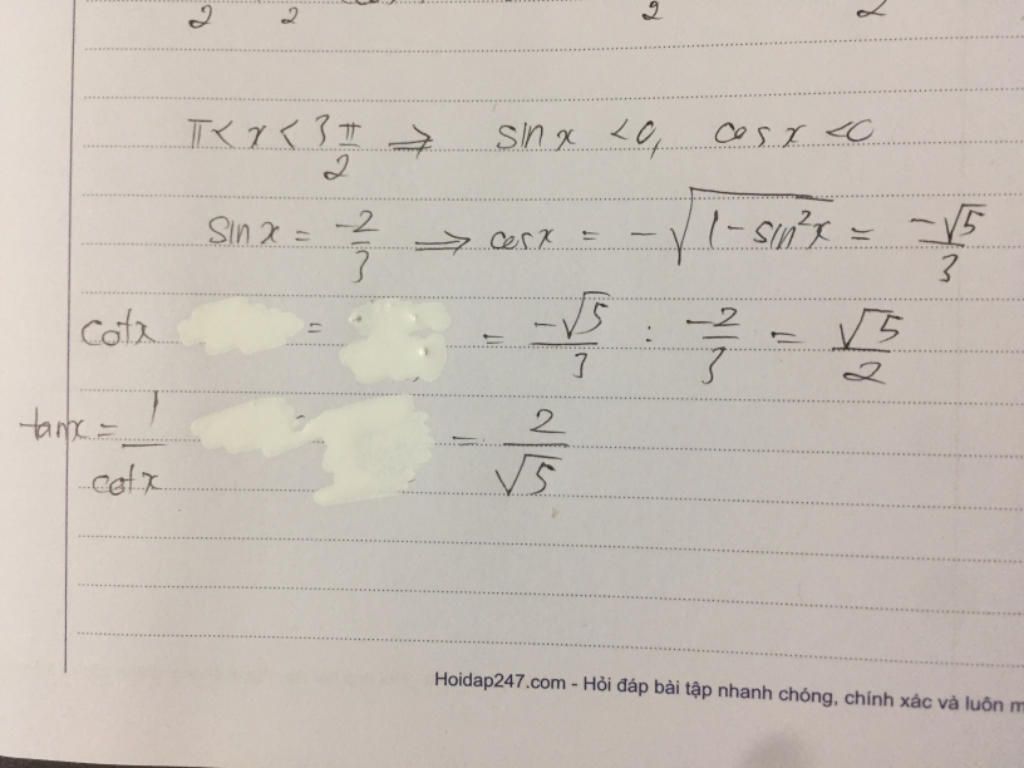 2 2 2 2
π < x < 3π/2 ⇒ sin x < 0, cos x < 0
sin x = -2/3 ⇒ cos x = -√(1 - sin²x) = -√5/3
cotx = = -√5/3 : -2/3 = √5/2
tanx = 1/cotx = 2/√5
Hoidap247.com - Hỏi đáp bài tập nhanh chóng, chính xác và luôn m